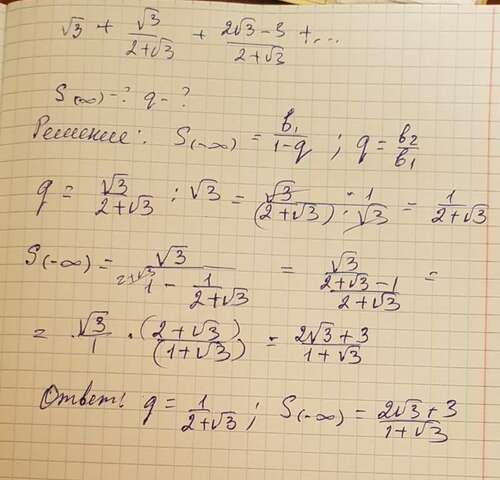 √3 + √3/(2+√3) + (2√3-3)/(2+√3) + ...
S(∞) - ? q - ?
Решение: S(-∞) = b₁/(1-q) ; q = b₂/b₁
q = √3/(2+√3) : √3 = (√3 · 1)/((2+√3) · √3) = 1/(2+√3)
S(-∞) = √3/(1 - 1/(2+√3)) = √3/((2+√3-1)/(2+√3)) =
= √3/1 · (2+√3)/(1+√3) = (2√3+3)/(1+√3)
Ответ! q = 1/(2+√3) ; S(-∞) = (2√3+3)/(1+√3)